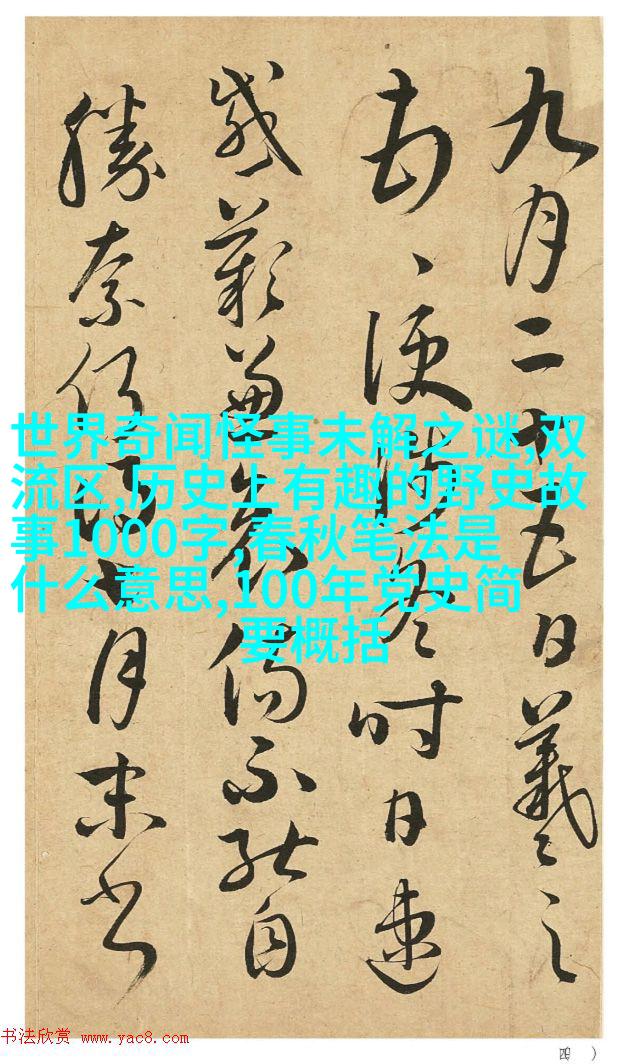 九月二十五日羲之
便陟冬時日速
感歎兼哀傷不能自
勝奈何得七月末書
世界奇闻怪事未解之谜,双
流区,历史上有趣的野史故
事1000字,春秋笔法是
什么意思,100年党史简
要概括
书法欣赏 www.yac8.com
四 )